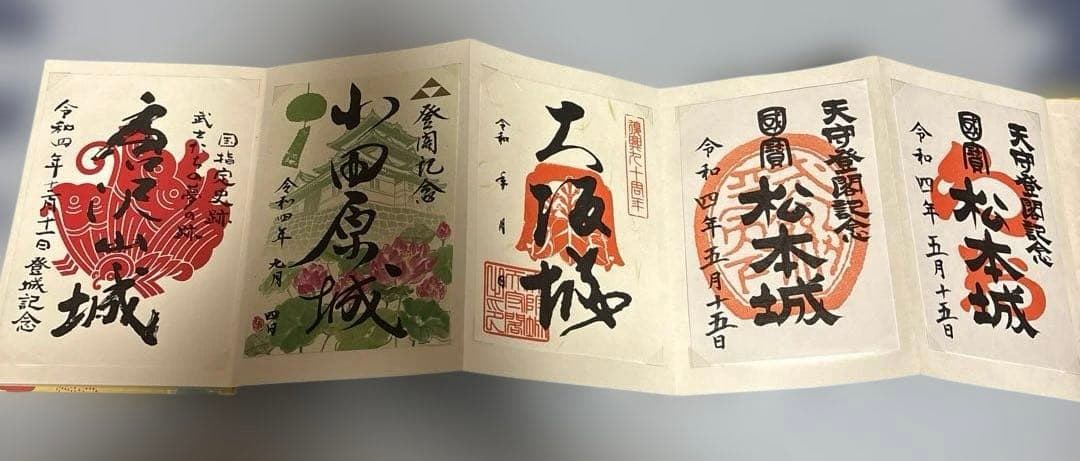 国指定史跡
武士たちの夢の跡
唐沢山城
令和四年十二月十一日 登城記念
登閣記念
小田原城
令和四年 九月 四日
復興九十周年
大阪城
令和 年 月 日
天守登閣記念
國寶 松本城
令和四年五月十五日
天守登閣記念
國寶 松本城
令和四年五月十五日